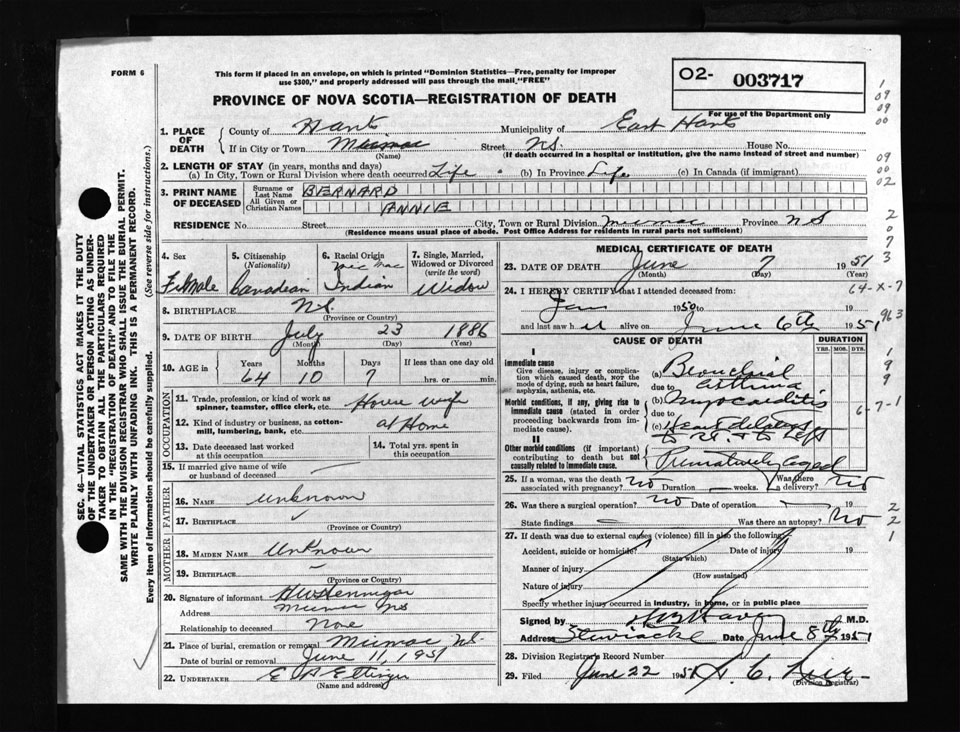 FORM 6
This form if placed in an envelope, on which is printed "Dominion Statistics—Free, penalty for improper
use $300," and properly addressed will pass through the mail, "FREE"
O2- 003717
For use of the Department only
PROVINCE OF NOVA SCOTIA—REGISTRATION OF DEATH
1. PLACE OF DEATH
County of Hants Municipality of East Hants
If in City or Town Micmac Street N.S. House No.
(Name) (If death occurred in a hospital or institution, give the name instead of street and number)
2. LENGTH OF STAY (in years, months and days)
(a) In City, Town or Rural Division where death occurred Life (b) In Province Life (c) In Canada (if immigrant)
3. PRINT NAME OF DECEASED
Surname or Last Name BERNARD
All Given or Christian Names ANNIE
RESIDENCE No. Street City, Town or Rural Division Micmac Province NS
(Residence means usual place of abode. Post Office Address for residents in rural parts not sufficient)
4. Sex Female
5. Citizenship (Nationality) Canadian
6. Racial Origin Mic Mac Indian
7. Single, Married, Widowed or Divorced (write the word) Widow
8. BIRTHPLACE N.S.
(Province or Country)
9. DATE OF BIRTH July 23 1886
(Month) (Day) (Year)
10. AGE in Years Months Days If less than one day old
64 10 7 hrs. or min.
OCCUPATION
11. Trade, profession, or kind of work as spinner, teamster, office clerk, etc. House wife
12. Kind of industry or business, as cotton-mill, lumbering, bank, etc. at Home
13. Date deceased last worked at this occupation
14. Total yrs. spent in this occupation
15. If married give name of wife or husband of deceased
FATHER
16. NAME unknown
17. BIRTHPLACE
(Province or Country)
MOTHER
18. MAIDEN NAME Unknown
19. BIRTHPLACE
(Province or Country)
20. Signature of informant
Address Micmac NS
Relationship to deceased None
21. Place of burial, cremation or removal Micmac N.S.
Date of burial or removal June 11, 1951
22. UNDERTAKER E A Ettinger
(Name and address)
MEDICAL CERTIFICATE OF DEATH
23. DATE OF DEATH June 7 1951
(Month) (Day) (Year)
24. I HEREBY CERTIFY that I attended deceased from:
64-X-7
Jan 1950 to 19
and last saw h alive on June 6th 1951
963
CAUSE OF DEATH DURATION
YRS. MOS. DYS.
I
Immediate cause
Give disease, injury or complication which caused death, NOT the mode of dying, such as heart failure, asphyxia, asthenia, etc.
(a) Bronchial Asthma
due to
Morbid conditions, if any, giving rise to immediate cause (stated in order proceeding backwards from immediate cause).
(b) Myocarditis
due to
6-7-1
(c) Heart
II
Other morbid conditions (if important) contributing to death but not causally related to immediate cause.
Prematurely aged
25. If a woman, was the death associated with pregnancy? No Duration weeks. Was there a delivery? No
26. Was there a surgical operation? No Date of operation 19
State findings Was there an autopsy? No
27. If death was due to external causes (violence) fill in also the following:
Accident, suicide or homicide? Date of injury 19
(State which)
Manner of injury
(How sustained)
Nature of injury
Specify whether injury occurred in industry, in home, or in public place
Signed by M.D.
Address Stewiacke Date June 8th 1951
28. Division Registrar's Record Number
29. Filed June 22 1951
(Division Registrar)
SEC. 46—VITAL STATISTICS ACT MAKES IT THE DUTY
OF THE UNDERTAKER OR PERSON ACTING AS UNDER-
TAKER TO OBTAIN ALL THE PARTICULARS REQUIRED
IN THE "REGISTRATION OF DEATH" AND TO FILE THE
SAME WITH THE DIVISION REGISTRAR WHO SHALL ISSUE THE BURIAL PERMIT.
WRITE PLAINLY WITH UNFADING INK. THIS IS A PERMANENT RECORD.
Every item of information should be carefully supplied. (See reverse side for instructions.)
1
09
09
00
09
00
02
2
0
7
3
1
9
9
2
2
1